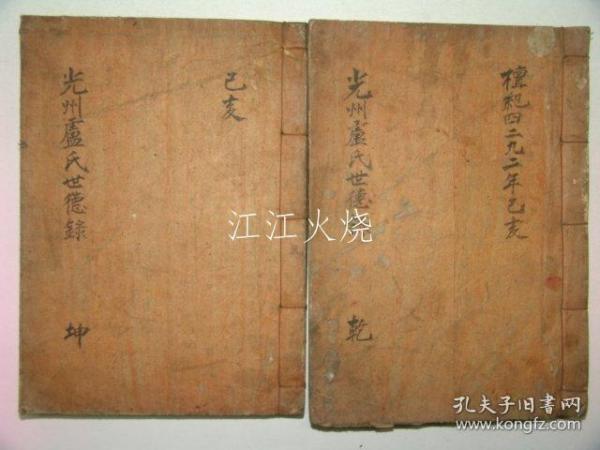 檀紀四二九二年己亥
光州盧氏世德
乾
己亥
光州盧氏世德錄
坤
江江火烧
孔夫子旧书网
www.kongfz.com